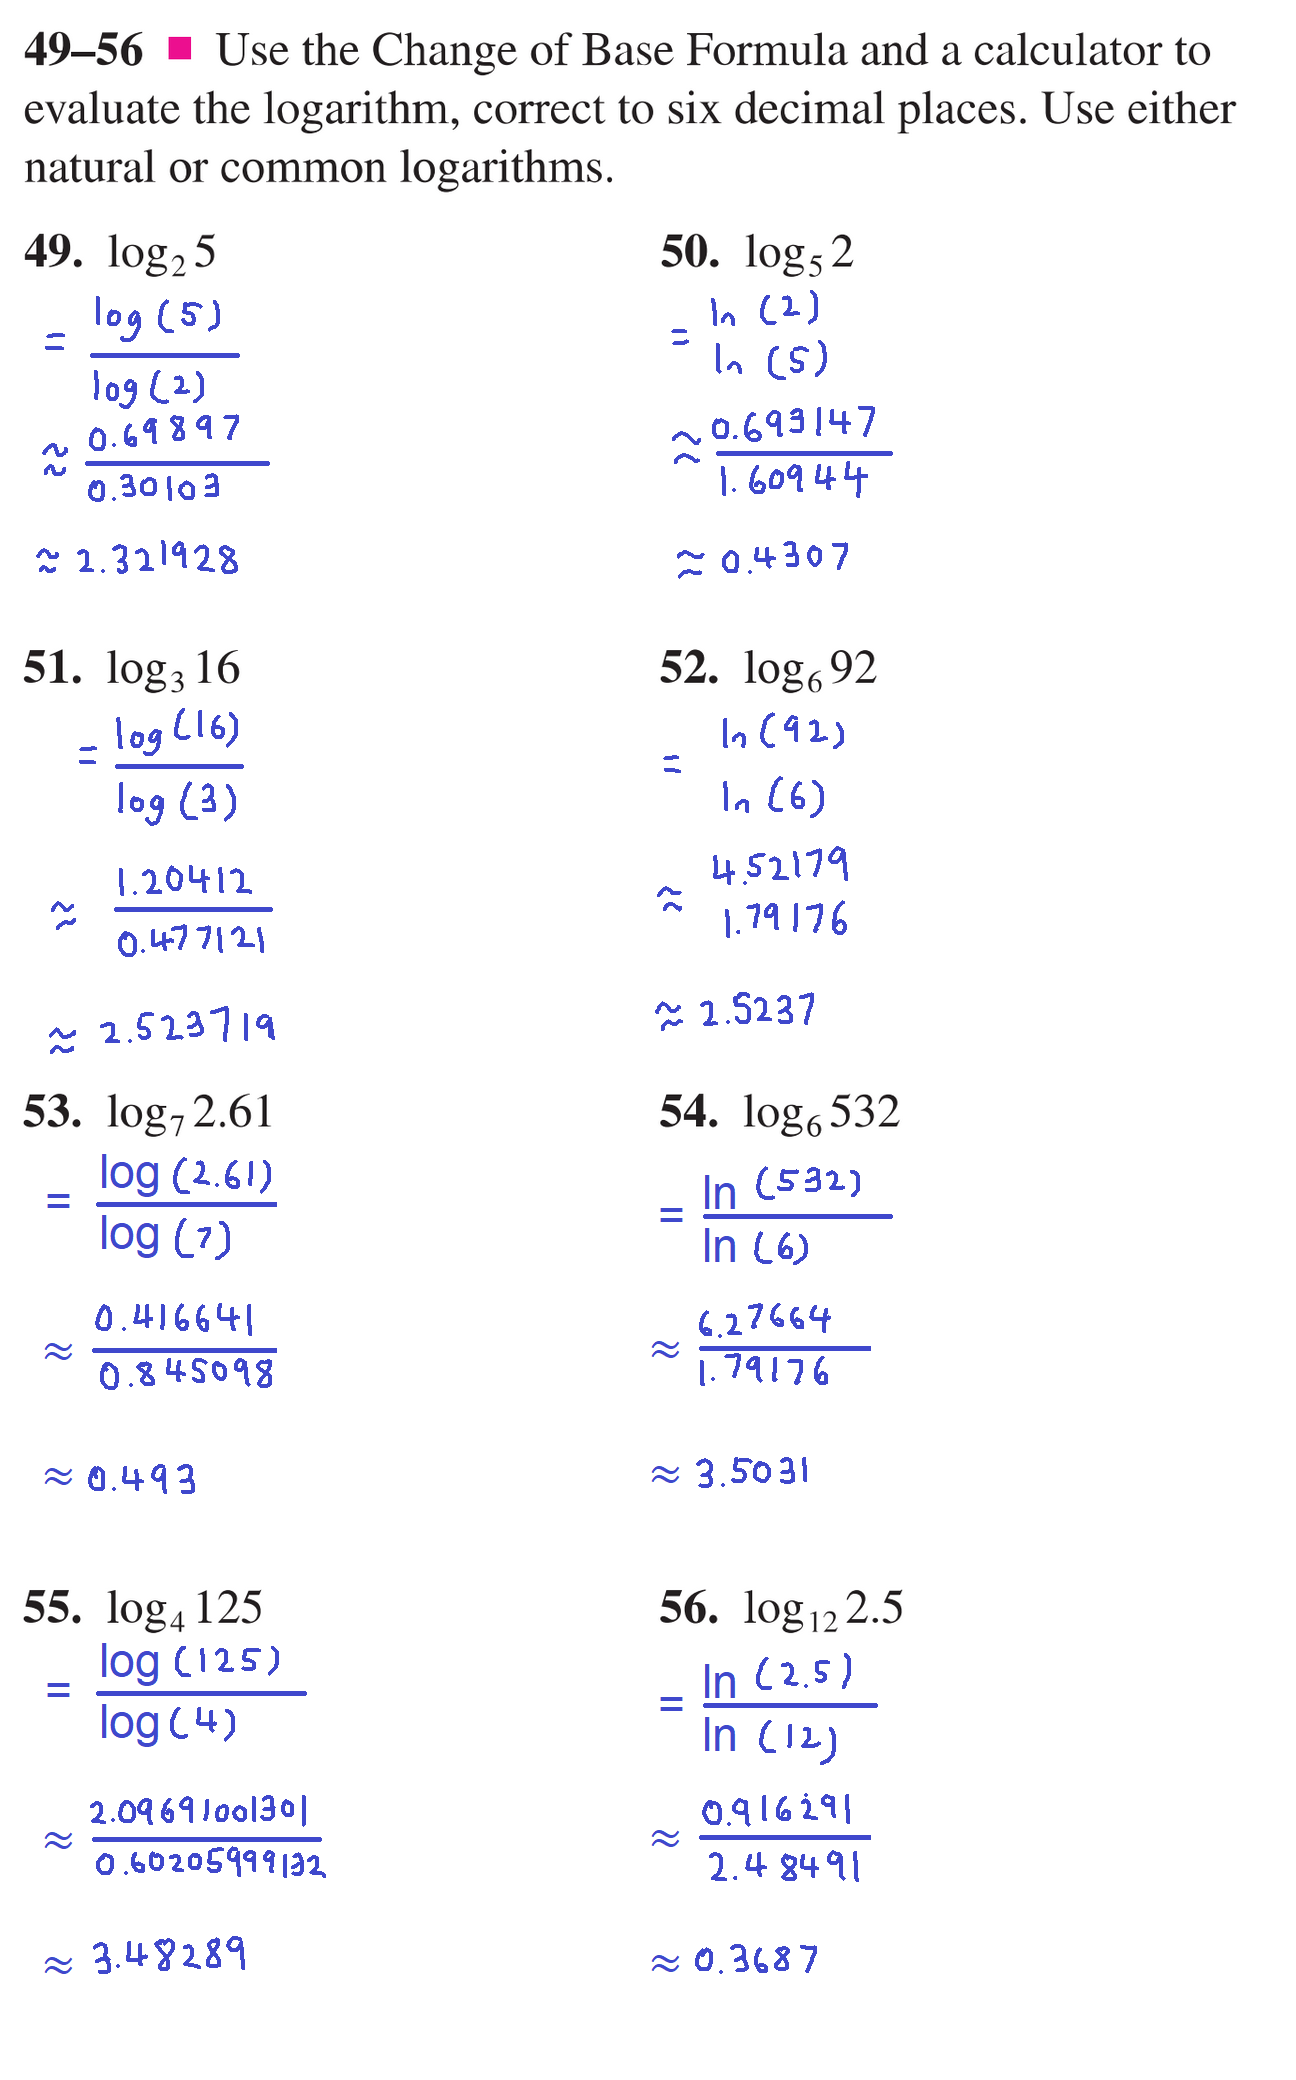 49–56 ■ Use the Change of Base Formula and a calculator to
evaluate the logarithm, correct to six decimal places. Use either
natural or common logarithms.
49. log₂ 5
= log (5)
log (2)
≈ 0.69897
0.30103
≈ 2.321928
50. log₅ 2
= ln (2)
ln (5)
≈ 0.693147
1.60944
≈ 0.4307
51. log₃ 16
= log (16)
log (3)
≈ 1.20412
0.477121
≈ 2.523719
52. log₆ 92
= ln (92)
ln (6)
≈ 4.52179
1.79176
≈ 2.5237
53. log₇ 2.61
= log (2.61)
log (7)
≈ 0.416641
0.845098
≈ 0.493
54. log₆ 532
= ln (532)
ln (6)
≈ 6.27664
1.79176
≈ 3.5031
55. log₄ 125
= log (125)
log (4)
≈ 2.09691001301
0.60205999132
≈ 3.48289
56. log₁₂ 2.5
= ln (2.5)
ln (12)
≈ 0.916291
2.48491
≈ 0.3687